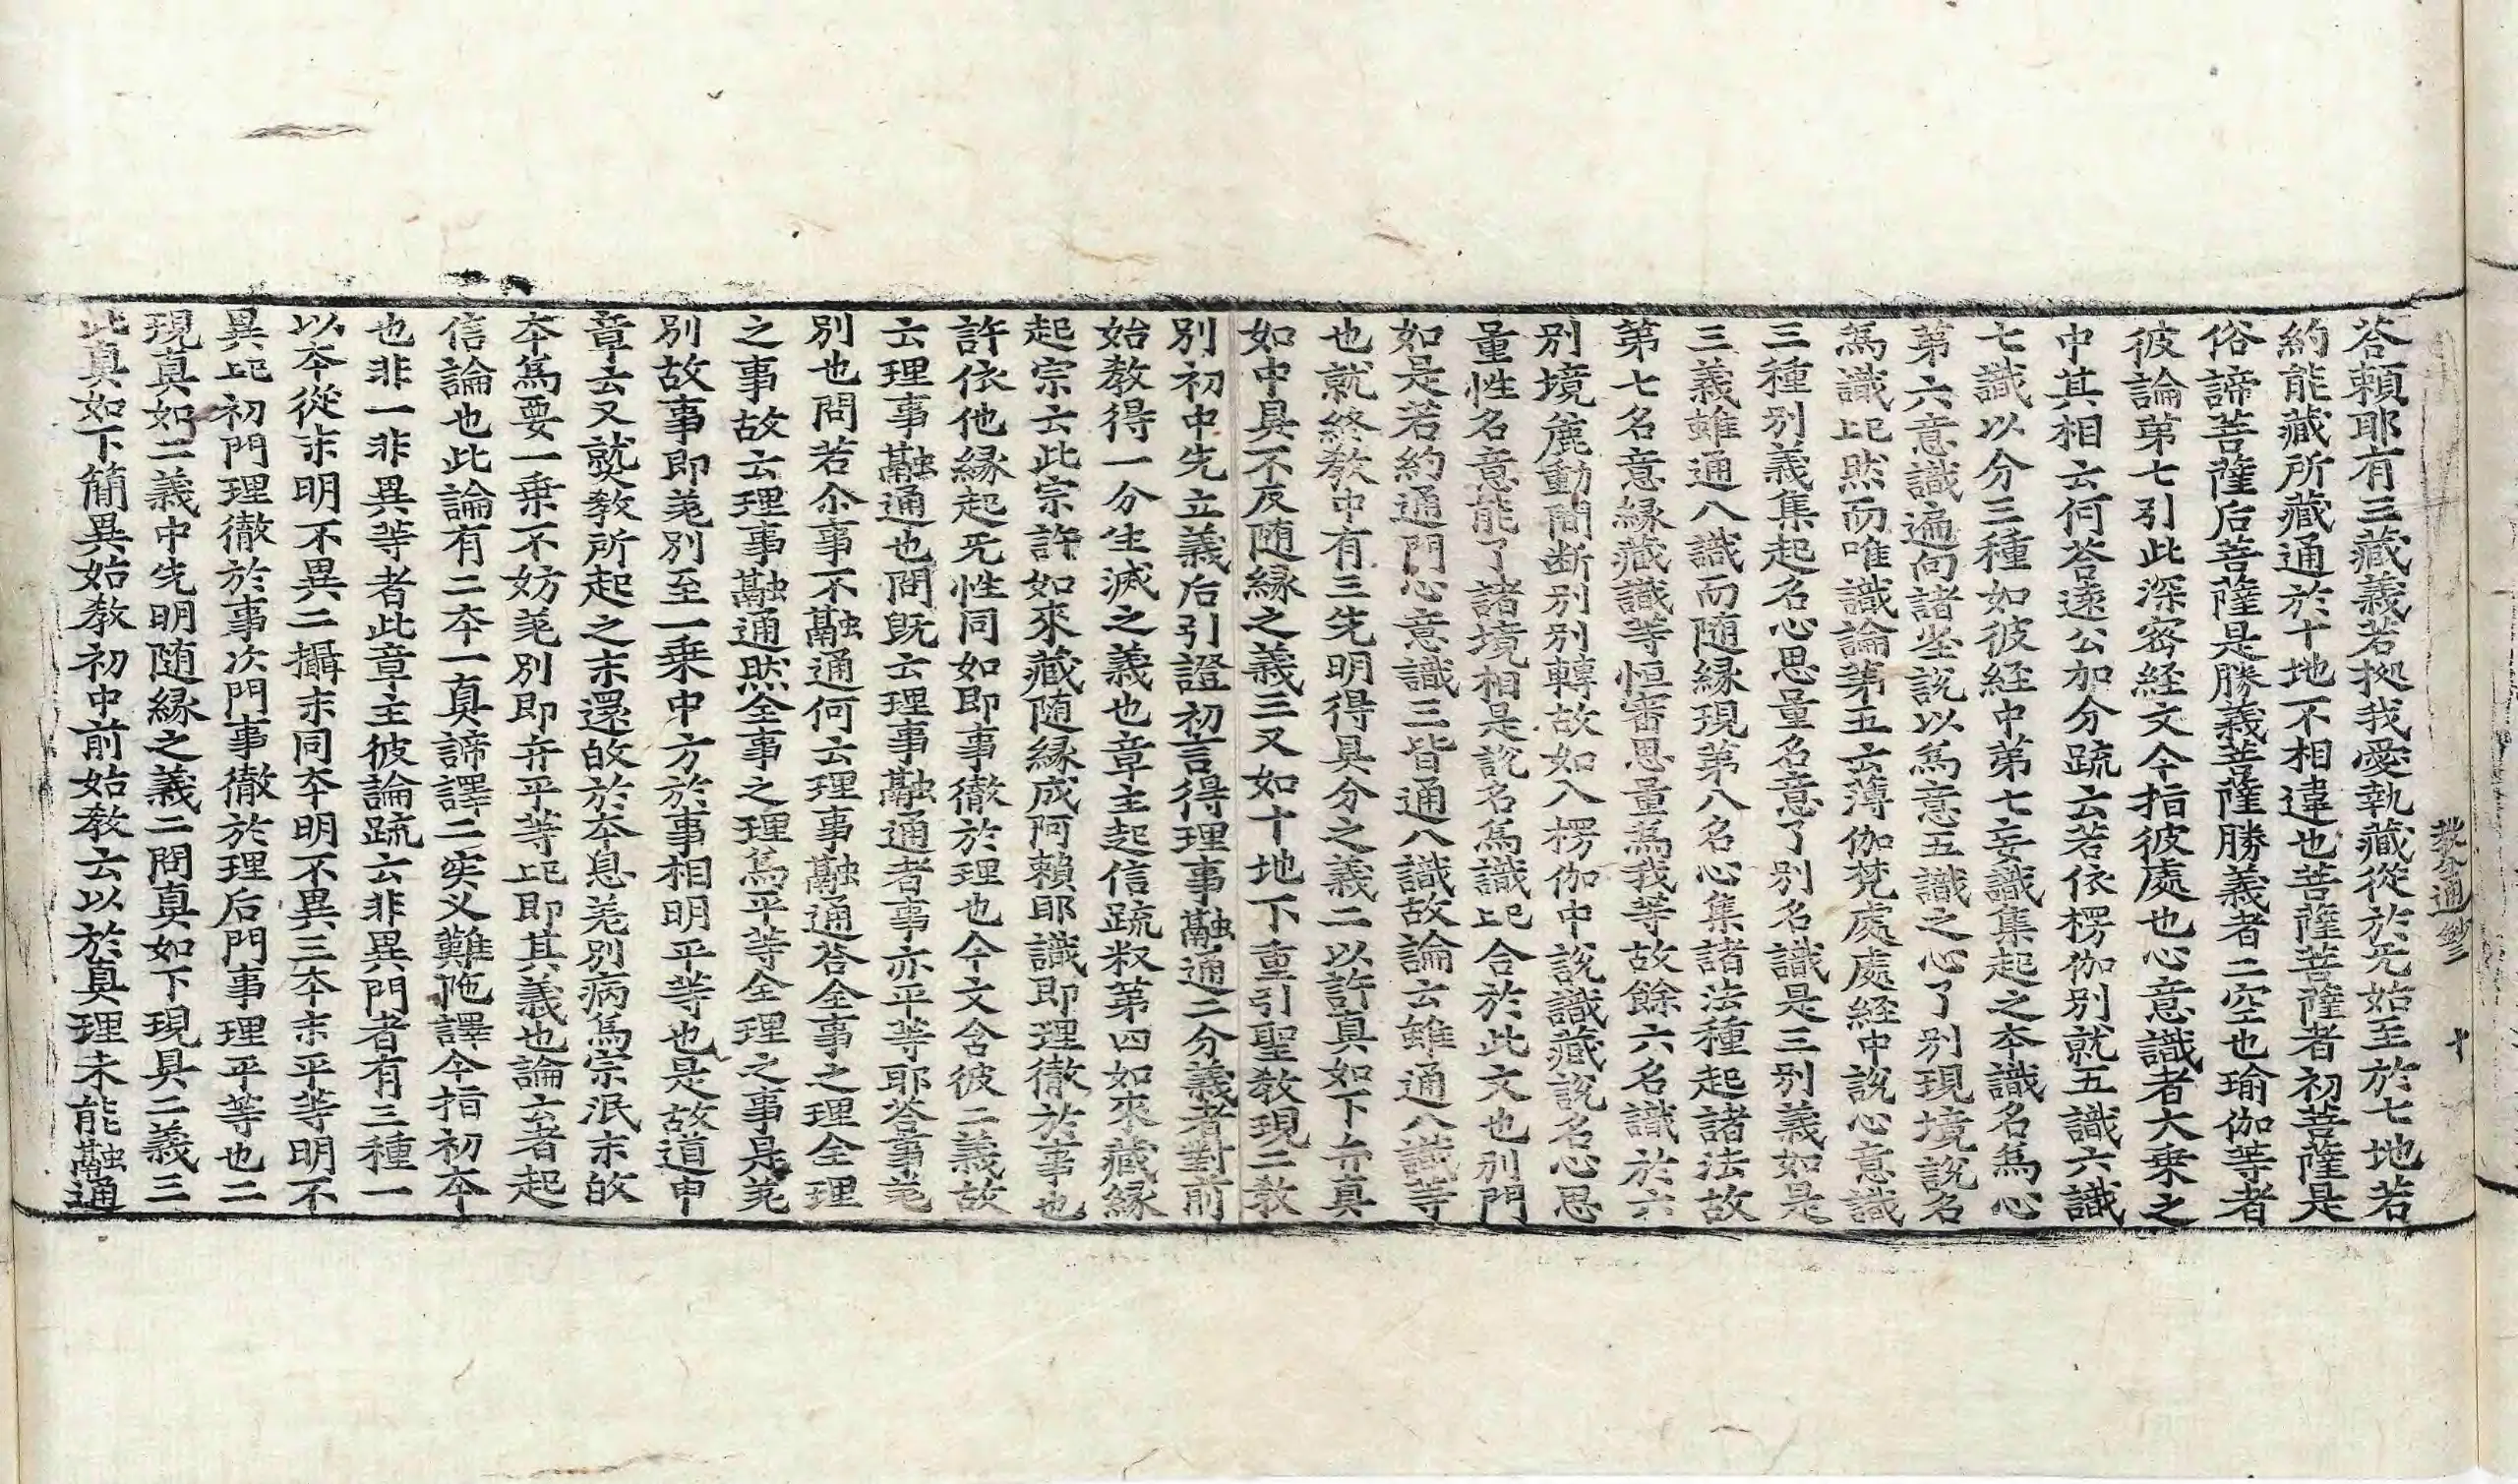 教分通鈔三 十
答賴耶有三藏義若拠我愛執藏從於无始至於七地若
約能藏所藏通於十地不相違也菩薩菩薩者初菩薩是
俗諦菩薩后菩薩是勝義菩薩勝義者二空也瑜伽等者
彼論第七引此深密経文今指彼處也心意識者大乗之
中其相云何答遠公加分䟽云若依楞伽別就五識六識
七識以分三種如彼経中第七妄識集起之夲識名爲心
第六意識遍向諸塵說以爲意五識之心了别現境說名
爲識記㸃而唯識論第五云薄伽梵處處経中說心意識
三種别義集起名心思量名意了别名識是三别義如是
三義雖通八識而随縁現第八名心集諸法種起諸法故
第七名意縁藏識等恒審思量爲我等故餘六名識於六
别境麁動間断别别轉故如入楞伽中說識藏說名心思
量性名意能了諸境相是說名爲識記合於此文也别門
如是若約通門心意識三皆通八識故論云雖通八識等
也就終教中有三先明得具分之義二以許真如下弁真
如中具不反随縁之義三又如十地下重引聖教現二教
別初中先立義后引證初言得理事融通二分義者對前
始教得一分生滅之義也章主起信䟽叙第四如來藏縁
起宗云此宗許如來藏随縁成阿賴耶識即理徹於事也
許依他縁起无性同如即事徹於理也今文含彼二義故
云理事融通也問旣云理事融通者事亦平等耶答事差
別也問若尒事不融通何云理事融通答全事之理全理
之事故云理事融通㸃全事之理爲平等全理之事是差
別故事即差別至一乗中方於事相明平等也是故道申
章云又就教所起之末還故於夲息差別病爲宗泯末故
夲爲要一乗不妨差別即弁平等記即其義也論云者起
信論也此論有二夲一真諦譯二实义難陁譯今指初夲
也非一非異等者此章主彼論䟽云非異門者有三種一
以夲從末明不異二攝末同夲明不異三夲末平等明不
異記初門理徹於事次門事徹於理后門事理平等也二
現真如二義中先明随縁之義二問真如下現具二義三
此真如下簡異始教初中前始教云以於真理未能融通